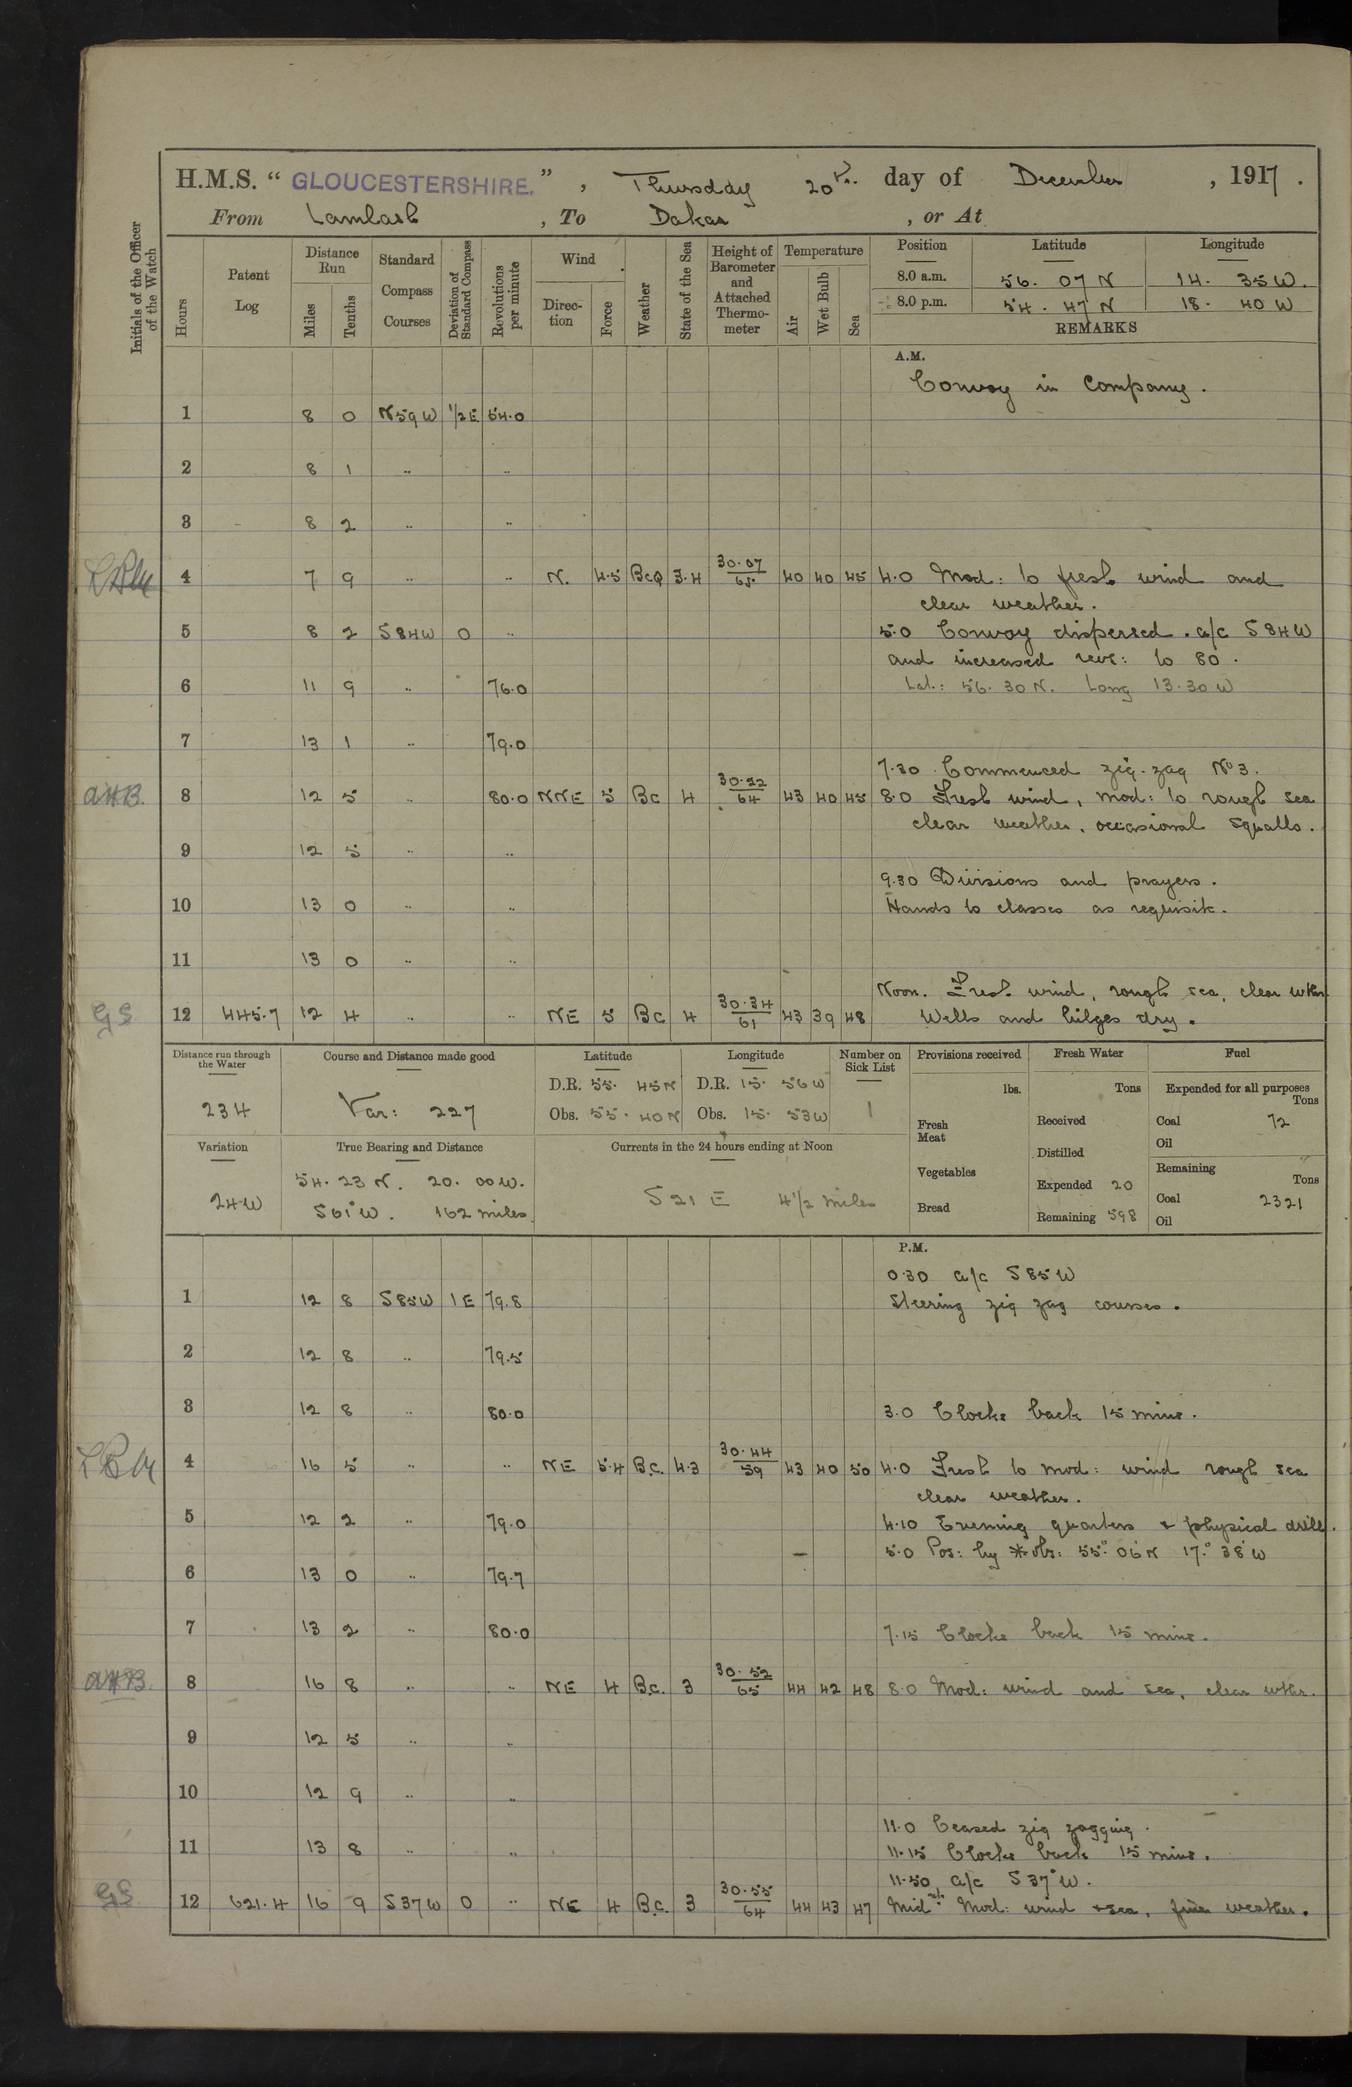 H.M.S. “ GLOUCESTERSHIRE. ” , Thursday 20th. day of December , 1917 .
From Lamlash , To Dakar , or At
Initials of the Officer of the Watch
Hours
Patent Log
Distance Run
Miles
Tenths
Standard Compass Courses
Deviation of Standard Compass
Revolutions per minute
Wind
Direction
Force
Weather
State of the Sea
Height of Barometer and Attached Thermometer
Temperature
Air
Wet Bulb
Sea
Position Latitude Longitude
8.0 a.m. 56. 07 N 14. 35 W.
8.0 p.m. 54. 47 N 18. 40 W
REMARKS
A.M.
Convoy in Company.
1 8 0 N59W 1/2E 54.0
2 8 1 .. ..
3 8 2 .. ..
4 7 9 .. .. N. 4.5 BcQ 3.4 30.07/65. 40 40 45 4.0 Mod: to fresh wind and
clear weather.
5 8 2 S84W 0 .. 5.0 Convoy dispersed. a/c S84W
and increased revs: to 80.
6 11 9 .. 76.0 Lat.: 56. 30 N. Long 13.30 W
7 13 1 .. 79.0
7.30 Commenced zig-zag No 3.
8 12 5 .. 80.0 NNE 5 Bc 4 30.22/64 43 40 45 8.0 Fresh wind, mod: to rough sea
clear weather, occasional squalls.
9 12 5 .. ..
9.30 Divisions and prayers.
10 13 0 .. .. Hands to classes as requisite.
11 13 0 .. ..
Noon. Fresh wind, rough sea, clear wthr.
GS 12 445.7 12 4 .. .. NE 5 Bc 4 30.34/61 43 39 48 Wells and bilges dry.
Distance run through the Water
234
Course and Distance made good
Var: 227
Latitude
D.R. 55. 45 N
Obs. 55. 40 N
Longitude
D.R. 15. 56 W
Obs. 15. 53 W
Number on Sick List
1
Variation
24 W
True Bearing and Distance
54. 23 N. 20. 00 W.
S 61° W. 162 miles.
Currents in the 24 hours ending at Noon
S 21 E 4 1/2 miles
Provisions received
lbs.
Fresh Meat
Vegetables
Bread
Fresh Water
Tons
Received
Distilled
Expended 20
Remaining 598
Fuel
Expended for all purposes
Tons
Coal 72
Oil
Remaining
Tons
Coal 2321
Oil
P.M.
0.30 a/c S85W
1 12 8 S85W 1E 79.8 Steering zig zag courses.
2 12 8 .. 79.5
3 12 8 .. 80.0 3.0 Clocks back 15 mins.
4 16 5 .. .. NE 5.4 B.C. 4.3 30.44/59 43 40 50 4.0 Fresh to mod: wind rough sea
clear weather.
5 12 2 .. 79.0 4.10 Evening quarters & physical drill.
5.0 Pos: by * obs: 55° 06' N 17° 38' W
6 13 0 .. 79.7
7 13 2 .. 80.0 7.15 Clocks back 15 mins.
8 16 8 .. .. NE 4 B.C. 3 30.52/65 44 42 48 8.0 Mod: wind and sea, clear wthr.
9 12 5 .. ..
10 12 9 .. ..
11.0 Ceased zig zagging.
11 13 8 .. .. 11.15 Clocks back 15 mins.
11.50 a/c S 37° W.
GS 12 621.4 16 9 S37W 0 .. NE 4 B.C. 3 30.55/64 44 43 47 Midnt. Mod: wind & sea, fine weather.